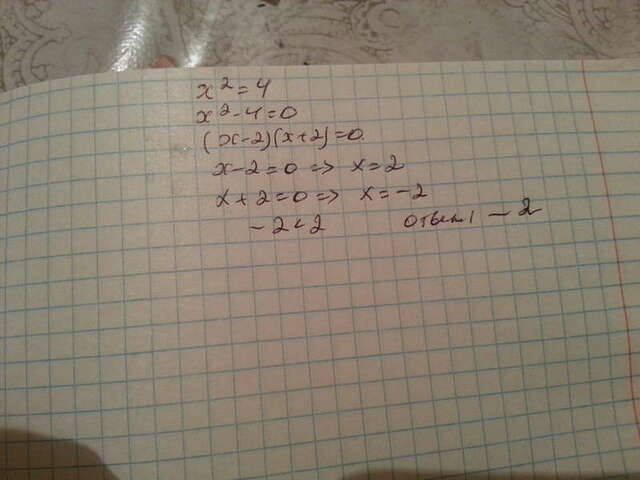 x² = 4
x² - 4 = 0
(x-2)(x+2) = 0
x-2 = 0 => x = 2
x+2 = 0 => x = -2
-2 < 2 ответ -2